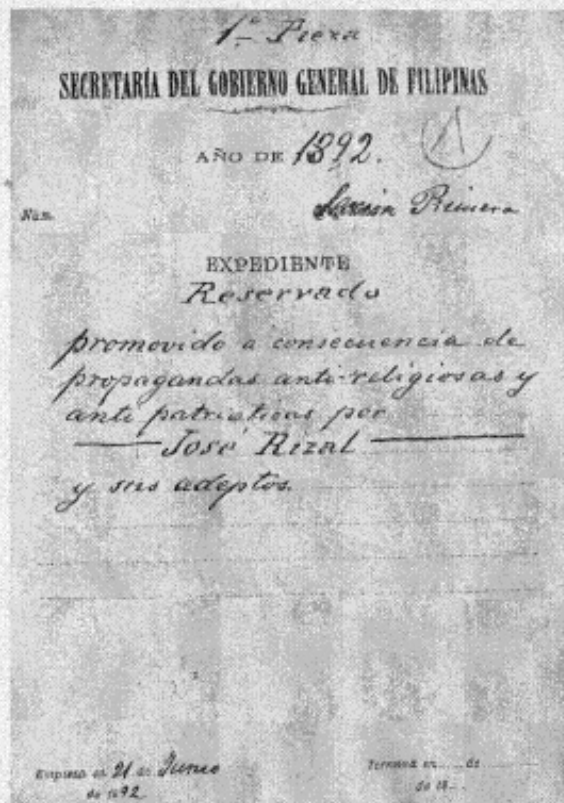 1ª Pieza
SECRETARÍA DEL GOBIERNO GENERAL DE FILIPINAS
AÑO DE 1892.
Núm.
Sección Primera
EXPEDIENTE
Reservado
promovido a consecuencia de
propagandas anti-religiosas y
anti patrioticas por
José Rizal
y sus adeptos.
Empieza en 21 de Junio
de 1892
Termina en de
de 18